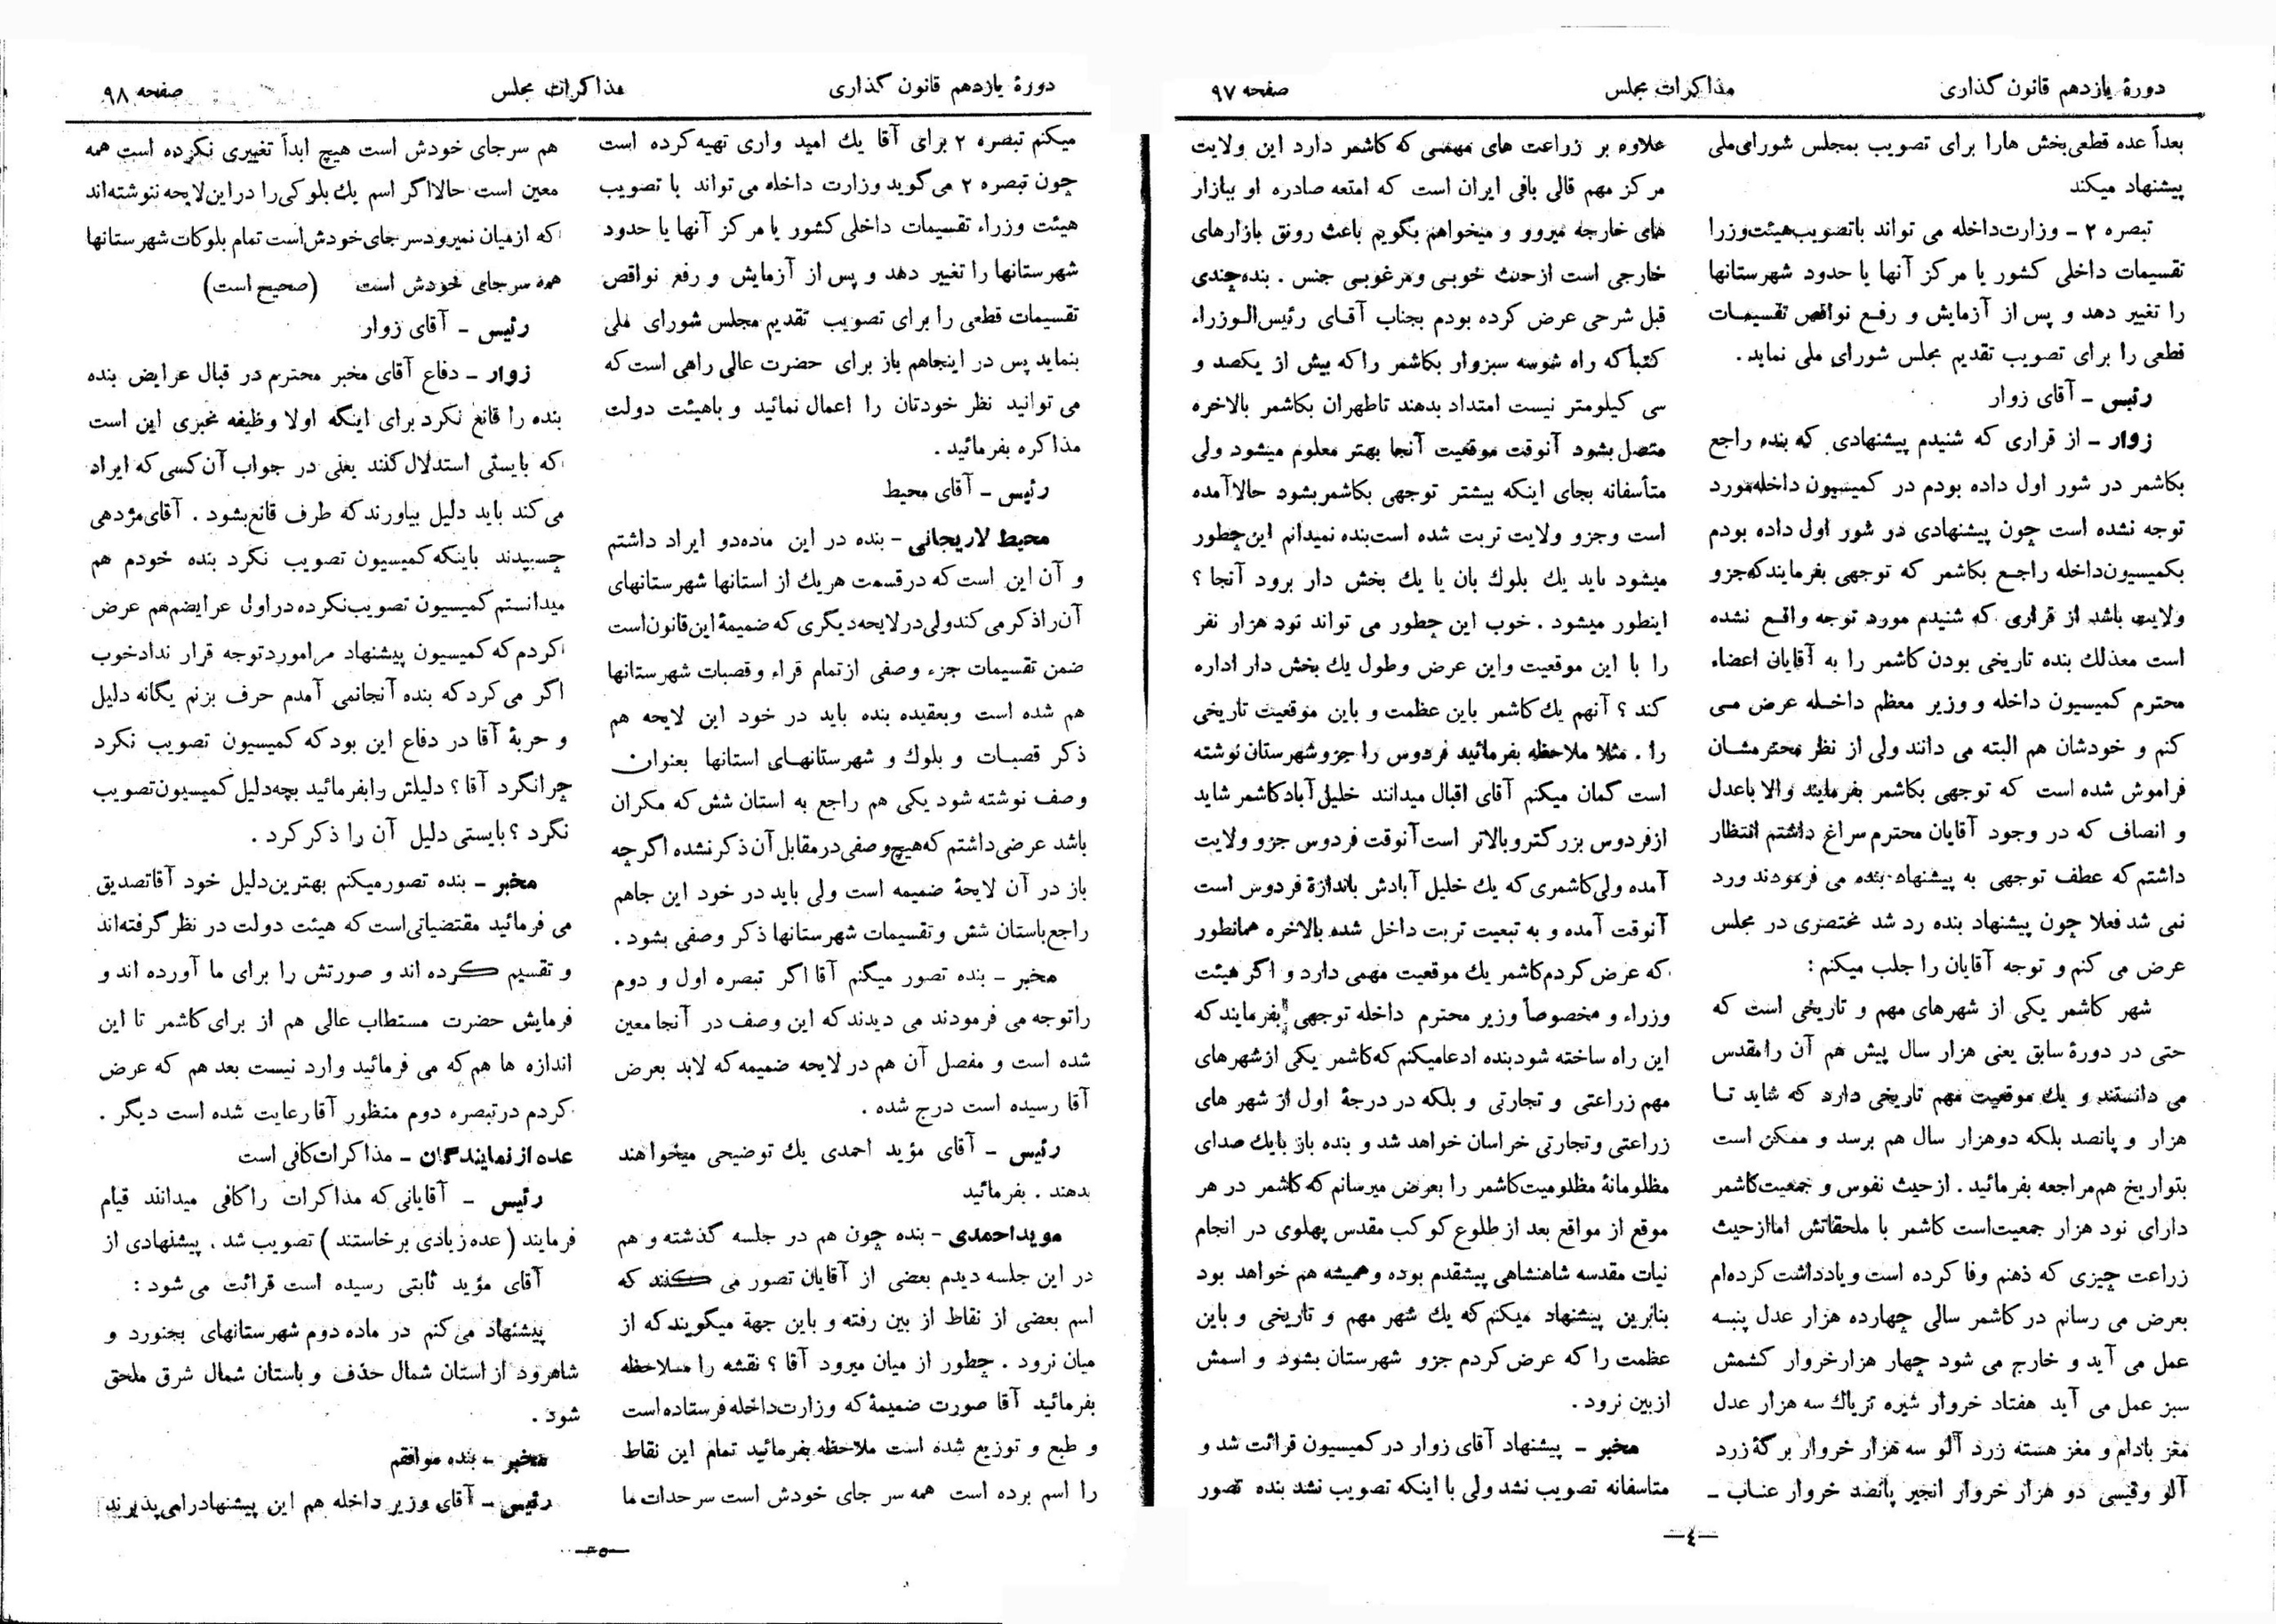 دورهٔ یازدهم قانون گذاری
مذاکرات مجلس
صفحه ۹۷
بعداً عده قطعی بخش هارا برای تصویب بمجلس شورای ملی
پیشنهاد میکند
تبصره ۲ - وزارت داخله می تواند باتصویب هیئت وزرا
تقسیمات داخلی کشور یا مرکز آنها یا حدود شهرستانها
را تغییر دهد و پس از آزمایش و رفع نواقص تقسیمات
قطعی را برای تصویب تقدیم مجلس شورای ملی نماید .
رئیس - آقای زوار
زوار - از قراری که شنیدم پیشنهادی که بنده راجع
بکاشمر در شور اول داده بودم در کمیسیون داخله مورد
توجه نشده است چون پیشنهادی دو شور اول داده بودم
بکمیسیون داخله راجع بکاشمر که توجهی بفرمایند که جزو
ولایت باشد از قراری که شنیدم مورد توجه واقع نشده
است معذلك بنده تاریخی بودن کاشمر را به آقایان اعضاء
محترم کمیسیون داخله و وزیر معظم داخله عرض می
کنم و خودشان هم البته می دانند ولی از نظر محترمشان
فراموش شده است که توجهی بکاشمر بفرمایند والا باعدل
و انصاف که در وجود آقایان محترم سراغ داشتم انتظار
داشتم که عطف توجهی به پیشنهاد بنده می فرمودند ورد
نمی شد فعلا چون پیشنهاد بنده رد شد مختصری در مجلس
عرض می کنم و توجه آقایان را جلب میکنم :
شهر کاشمر یکی از شهرهای مهم و تاریخی است که
حتی در دورهٔ سابق یعنی هزار سال پیش هم آن را مقدس
می دانستند و يك موقعیت مهم تاریخی دارد که شاید تا
هزار و پانصد بلکه دوهزار سال هم برسد و ممکن است
بتواریخ هم مراجعه بفرمائید . از حیث نفوس و جمعیت کاشمر
دارای نود هزار جمعیت است کاشمر با ملحقاتش اما از حیث
زراعت چیزی که ذهنم وفا کرده است و یادداشت کرده ام
بعرض می رسانم در کاشمر سالی چهارده هزار عدل پنبه
عمل می آید و خارج می شود چهار هزار خروار کشمش
سبز عمل می آید هفتاد خروار شیره تریاك سه هزار عدل
مغز بادام و مغز هسته زرد آلو سه هزار خروار برگهٔ زرد
آلو وقیسی دو هزار خروار انجیر پانصد خروار عناب -
علاوه بر زراعت های مهمی که کاشمر دارد این ولایت
مرکز مهم قالی بافی ایران است که امتعه صادره او ببازار
های خارجه میروو و میخواهم بگویم باعث رونق بازارهای
خارجی است از حیث خوبی و مرغوبی جنس . بنده چندی
قبل شرحی عرض کرده بودم بجناب آقای رئیس الوزراء
کتباً که راه شوسه سبزوار بکاشمر را که بیش از یکصد و
سی کیلومتر نیست امتداد بدهند تاطهران بکاشمر بالاخره
متصل بشود آنوقت موقعیت آنجا بهتر معلوم میشود ولی
متأسفانه بجای اینکه بیشتر توجهی بکاشمر بشود حالا آمده
است وجزو ولایت تربت شده است بنده نمیدانم این چطور
میشود باید يك بلوك بان یا يك بخش دار برود آنجا ؟
اینطور میشود . خوب این چطور می تواند نود هزار نفر
را با این موقعیت واین عرض وطول يك بخش دار اداره
کند ؟ آنهم يك کاشمر باین عظمت و باین موقعیت تاریخی
را . مثلا ملاحظه بفرمائید فردوس را جزو شهرستان نوشته
است گمان میکنم آقای اقبال میدانند خلیل آباد کاشمر شاید
از فردوس بزرگتر و بالاتر است آنوقت فردوس جزو ولایت
آمده ولی کاشمری که يك خلیل آبادش باندازهٔ فردوس است
آنوقت آمده و به تبعیت تربت داخل شده بالاخره همانطور
که عرض کردم کاشمر يك موقعیت مهمی دارد و اگر هیئت
وزراء و مخصوصاً وزیر محترم داخله توجهی بفرمایند که
این راه ساخته شود بنده ادعا میکنم که کاشمر یکی از شهرهای
مهم زراعتی و تجارتی و بلکه در درجهٔ اول از شهر های
زراعتی و تجارتی خراسان خواهد شد و بنده باز بايك صدای
مظلومانهٔ مظلومیت کاشمر را بعرض میرسانم که کاشمر در هر
موقع از مواقع بعد از طلوع کوکب مقدس پهلوی در انجام
نیات مقدسه شاهنشاهی پیشقدم بوده وهمیشه هم خواهد بود
بنابرین پیشنهاد میکنم که يك شهر مهم و تاریخی و باین
عظمت را که عرض کردم جزو شهرستان بشود و اسمش
از بین نرود .
مخبر - پیشنهاد آقای زوار در کمیسیون قرائت شد و
متاسفانه تصویب نشد ولی با اینکه تصویب نشد بنده تصور
—٤—
دورهٔ یازدهم قانون گذاری
مذاکرات مجلس
صفحه ۹۸
میکنم تبصره ۲ برای آقا يك امید واری تهیه کرده است
چون تبصره ۲ می گوید وزارت داخله می تواند با تصویب
هیئت وزراء تقسیمات داخلی کشور یا مرکز آنها یا حدود
شهرستانها را تغییر دهد و پس از آزمایش و رفع نواقص
تقسیمات قطعی را برای تصویب تقدیم مجلس شورای ملی
بنماید پس در اینجاهم باز برای حضرت عالی راهی است که
می توانید نظر خودتان را اعمال نمائید و باهیئت دولت
مذاکره بفرمائید .
رئیس - آقای محیط
محیط لاریجانی - بنده در این ماده دو ایراد داشتم
و آن این است که در قسمت هر يك از استانها شهرستانهای
آن را ذکر می کند ولی در لایحه دیگری که ضمیمهٔ این قانون است
ضمن تقسیمات جزء وصفی از تمام قراء و قصبات شهرستانها
هم شده است و بعقیده بنده باید در خود این لایحه هم
ذکر قصبات و بلوك و شهرستانهای استانها بعنوان
وصف نوشته شود یکی هم راجع به استان شش که مکران
باشد عرضی داشتم که هیچ وصفی در مقابل آن ذکر نشده اگر چه
باز در آن لایحهٔ ضمیمه است ولی باید در خود این جاهم
راجع باستان شش و تقسیمات شهرستانها ذکر وصفی بشود .
مخبر - بنده تصور میکنم آقا اگر تبصره اول و دوم
را توجه می فرمودند می دیدند که این وصف در آنجا معین
شده است و مفصل آن هم در لایحه ضمیمه که لابد بعرض
آقا رسیده است درج شده .
رئیس - آقای مؤید احمدی يك توضیحی میخواهند
بدهند . بفرمائید
مویداحمدی - بنده چون هم در جلسه گذشته و هم
در این جلسه دیدم بعضی از آقایان تصور می کنند که
اسم بعضی از نقاط از بین رفته و باین جهة میگویند که از
میان نرود . چطور از میان میرود آقا ؟ نقشه را ملاحظه
بفرمائید آقا صورت ضمیمهٔ که وزارت داخله فرستاده است
و طبع و توزیع شده است ملاحظه بفرمائید تمام این نقاط
را اسم برده است همه سر جای خودش است سرحدات ما
هم سرجای خودش است هیچ ابداً تغییری نکرده است همه
معین است حالا اگر اسم يك بلوکی را در این لایحه ننوشته اند
که از میان نمیرود سر جای خودش است تمام بلوکات شهرستانها
همه سر جای خودش است (صحیح است)
رئیس - آقای زوار
زوار - دفاع آقای مخبر محترم در قبال عرایض بنده
بنده را قانع نکرد برای اینکه اولا وظیفه مخبری این است
که بایستی استدلال کنند یعنی در جواب آن کسی که ایراد
می کند باید دلیل بیاورند که طرف قانع بشود . آقای مژدهی
چسبیدند باینکه کمیسیون تصویب نکرد بنده خودم هم
میدانستم کمیسیون تصویب نکرده در اول عرایضم هم عرض
کردم که کمیسیون پیشنهاد مرا مورد توجه قرار نداد خوب
اگر می کرد که بنده آنجا نمی آمدم حرف بزنم یگانه دلیل
و حربهٔ آقا در دفاع این بود که کمیسیون تصویب نکرد
چرا نکرد آقا ؟ دلیلش را بفرمائید بچه دلیل کمیسیون تصویب
نکرد ؟ بایستی دلیل آن را ذکر کرد .
مخبر - بنده تصور میکنم بهترین دلیل خود آقا تصدیق
می فرمائید مقتضیاتی است که هیئت دولت در نظر گرفته اند
و تقسیم کرده اند و صورتش را برای ما آورده اند و
فرمایش حضرت مستطاب عالی هم از برای کاشمر تا این
اندازه ها هم که می فرمائید وارد نیست بعد هم که عرض
کردم در تبصره دوم منظور آقا رعایت شده است دیگر .
عده از نمایندگان - مذاکرات کافی است
رئیس - آقایانی که مذاکرات را کافی میدانند قیام
فرمایند ( عده زیادی برخاستند ) تصویب شد . پیشنهادی از
آقای مؤید ثابتی رسیده است قرائت می شود :
پیشنهاد می کنم در ماده دوم شهرستانهای بجنورد و
شاهرود از استان شمال حذف و باستان شمال شرق ملحق
شود .
مخبر - بنده موافقم
رئیس - آقای وزیر داخله هم این پیشنهاد را می پذیرند
—٥—